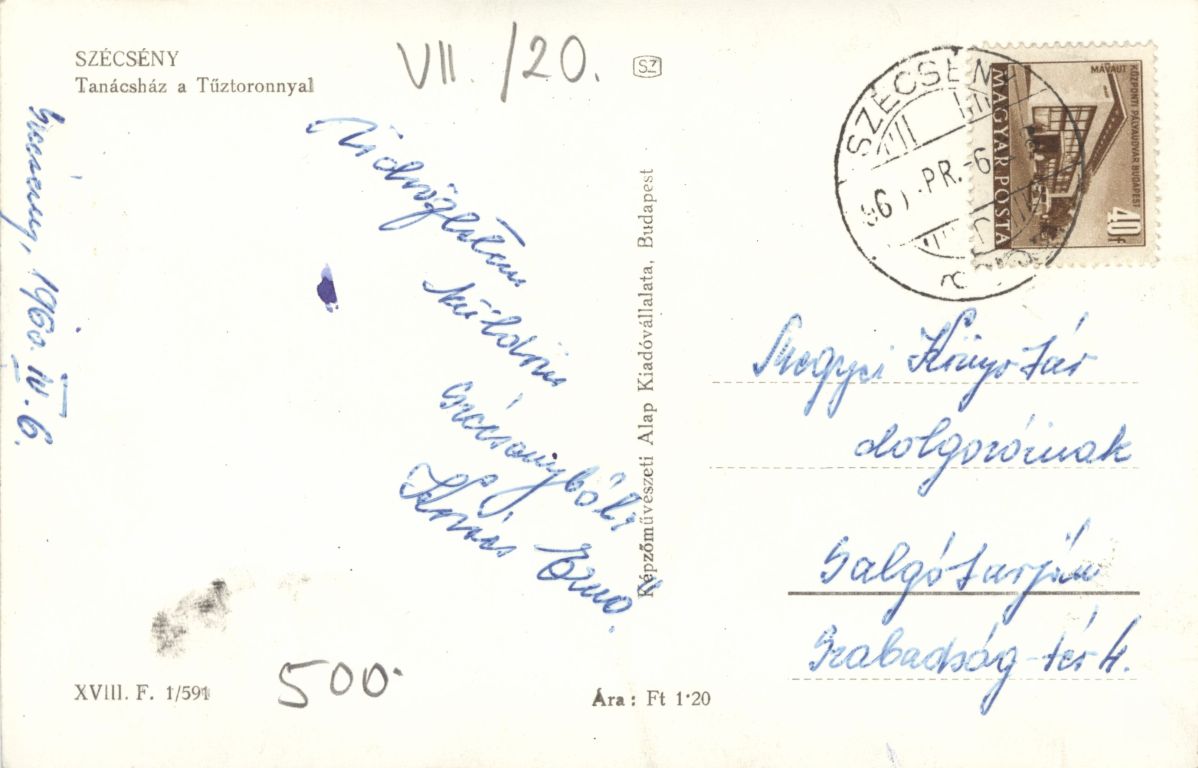 SZÉCSÉNY
Tanácsház a Tűztoronnyal
VII. /20.
SZ
Szécsény, 1960. IV. 6.
Üdvözletem
küldöm
Szécsényből:
Ernő.
Képzőművészeti Alap Kiadóvállalata, Budapest
SZÉCSÉNY
MAGYAR POSTA
MÁVAUT
KÖZPONTI PÁLYAUDVAR BUDAPEST
40f
Megyei Könyvtár
dolgozóinak
Salgótarján
Szabadság-tér 4.
XVIII. F. 1/591
500.
Ára: Ft 1·20